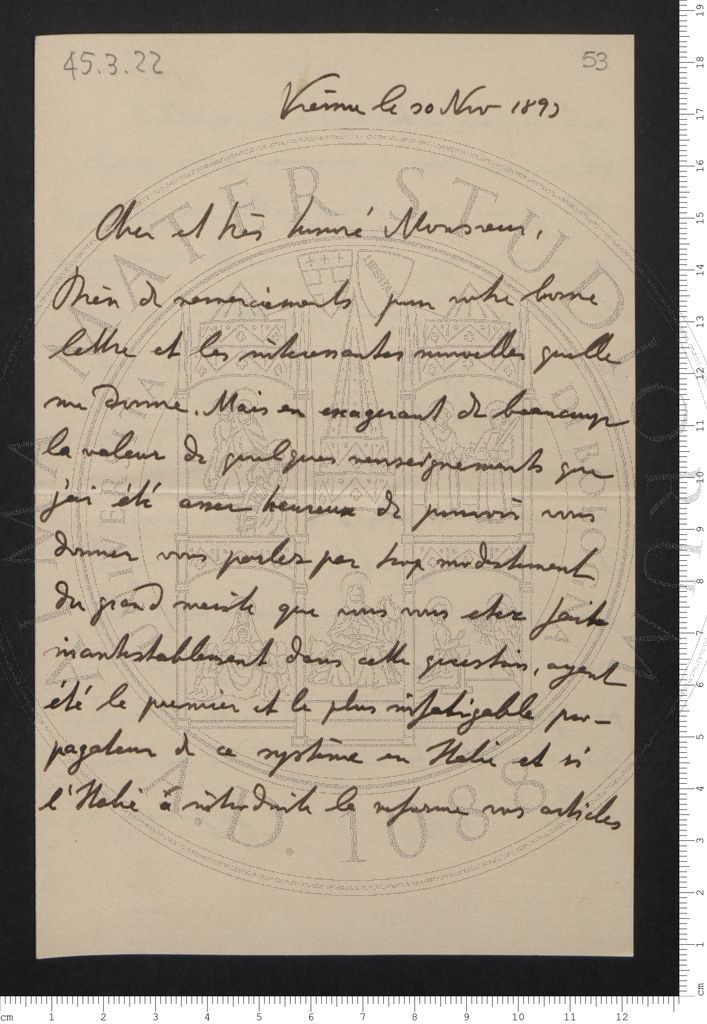 45.3.22
53
Vienne le 30 Nov 1893
Cher et très honoré Monsieur,
Bien de remerciements pour votre bonne
lettre et les intéressantes nouvelles quelle
me donne. Mais en exagerant de beaucoup
la valeur de quelques renseignements que
j'ai été assez heureux de pouvoir vous
donner vous parlez par trop modestement
du grand merite que vous vous etez faite
incontestablement dans cette question, ayant
été le premier et le plus infatigable pro-
pagateur de ce système en Italie et si
l'Italie a introduite la reforme vos articles
ALMA MATER STUDIORUM
A.D. 1088
cm 1 2 3 4 5 6 7 8 9 10 11 12
cm 1 2 3 4 5 6 7 8 9 10 11 12 13 14 15 16 17 18 19